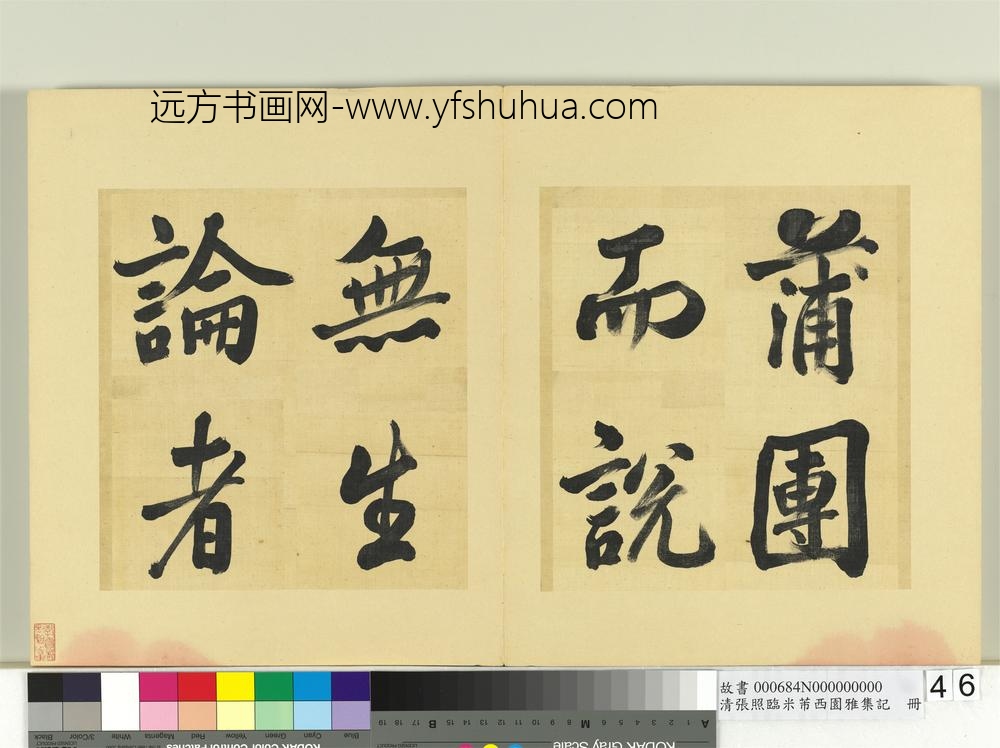 远方书画网-www.yfshuhua.com
蒲團
而說
無生
論者
故書 000684N000000000
清張照臨米芾西園雅集記 冊
46
Black
3/Color
White
Magenta
Red
Yellow
Green
Cyan
Blue
KODAK Color Control Patches
KODAK Gray Scale
A 1 2 3 4 5 6 M 8 9 10 11 12 13 14 15 B 17 18 19